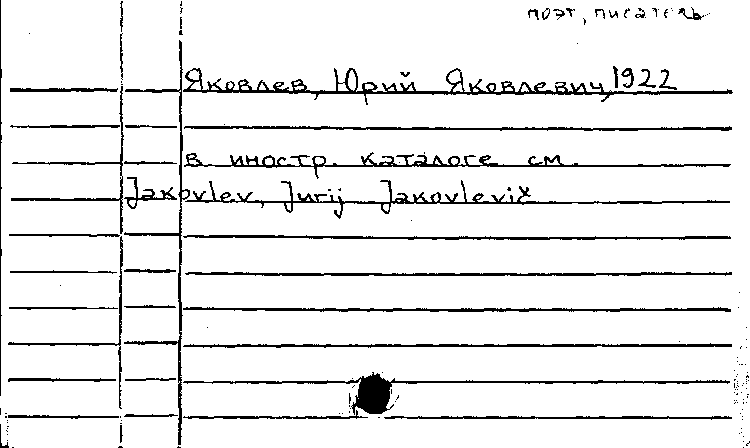 поэт, писатель
Яковлев, Юрий Яковлевич, 1922
в иностр. каталоге см.
Jakovlev, Jurij Jakovlevič